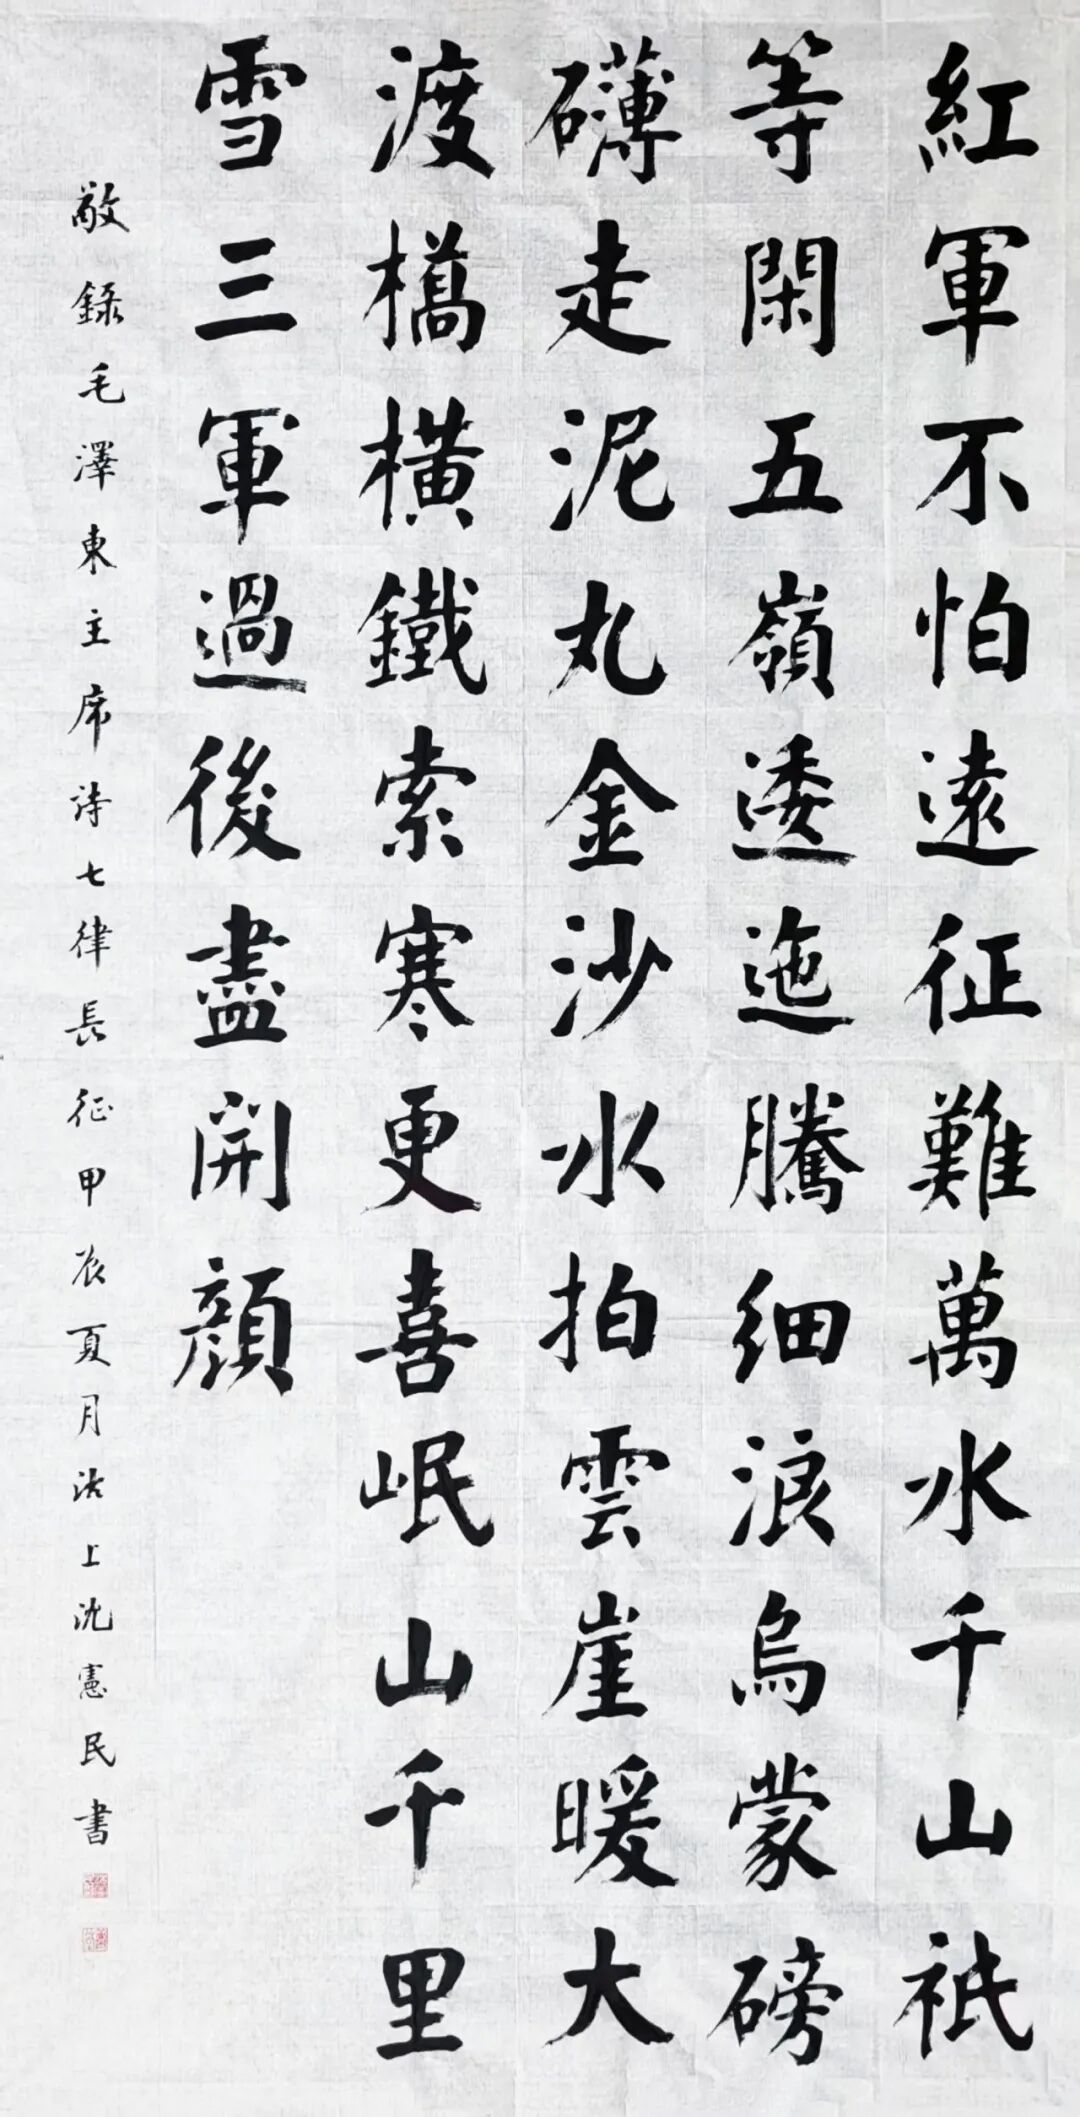 紅軍不怕遠征難萬水千山祇
等閑五嶺逶迤騰細浪烏蒙磅
礴走泥丸金沙水拍雲崖暖大
渡橋橫鐵索寒更喜岷山千里
雪三軍過後盡開顏
敬錄毛澤東主席詩七律長征甲辰夏月沽上沈憲民書